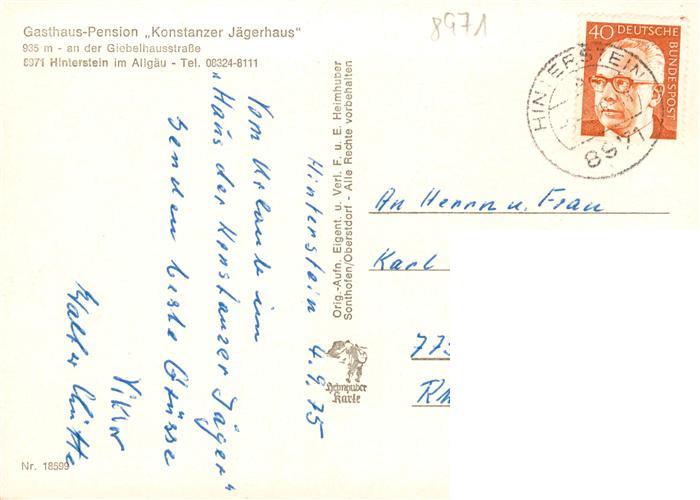 Gasthaus-Pension „Konstanzer Jägerhaus"
935 m - an der Giebelhausstraße
8971 Hinterstein im Allgäu - Tel. 08324-8111
8971
40 DEUTSCHE BUNDESPOST
HINTERSTEIN
8971
Hinterstein 4.9.75
Vom Urlaub im
„Haus der Konstanzer Jäger"
senden beste Grüsse
Viktor
Walter
Orig.-Aufn. Eigent. u. Verl. F. u. E. Heimhuber
Sonthofen/Oberstdorf - Alle Rechte vorbehalten
Heimhuber
Karte
An Herrn u. Frau
Karl
775
Rh
Nr. 18599